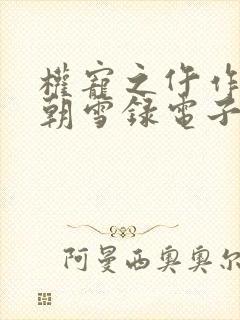 權寵之仵作
朝雪録電子
阿曼西奥奥尔